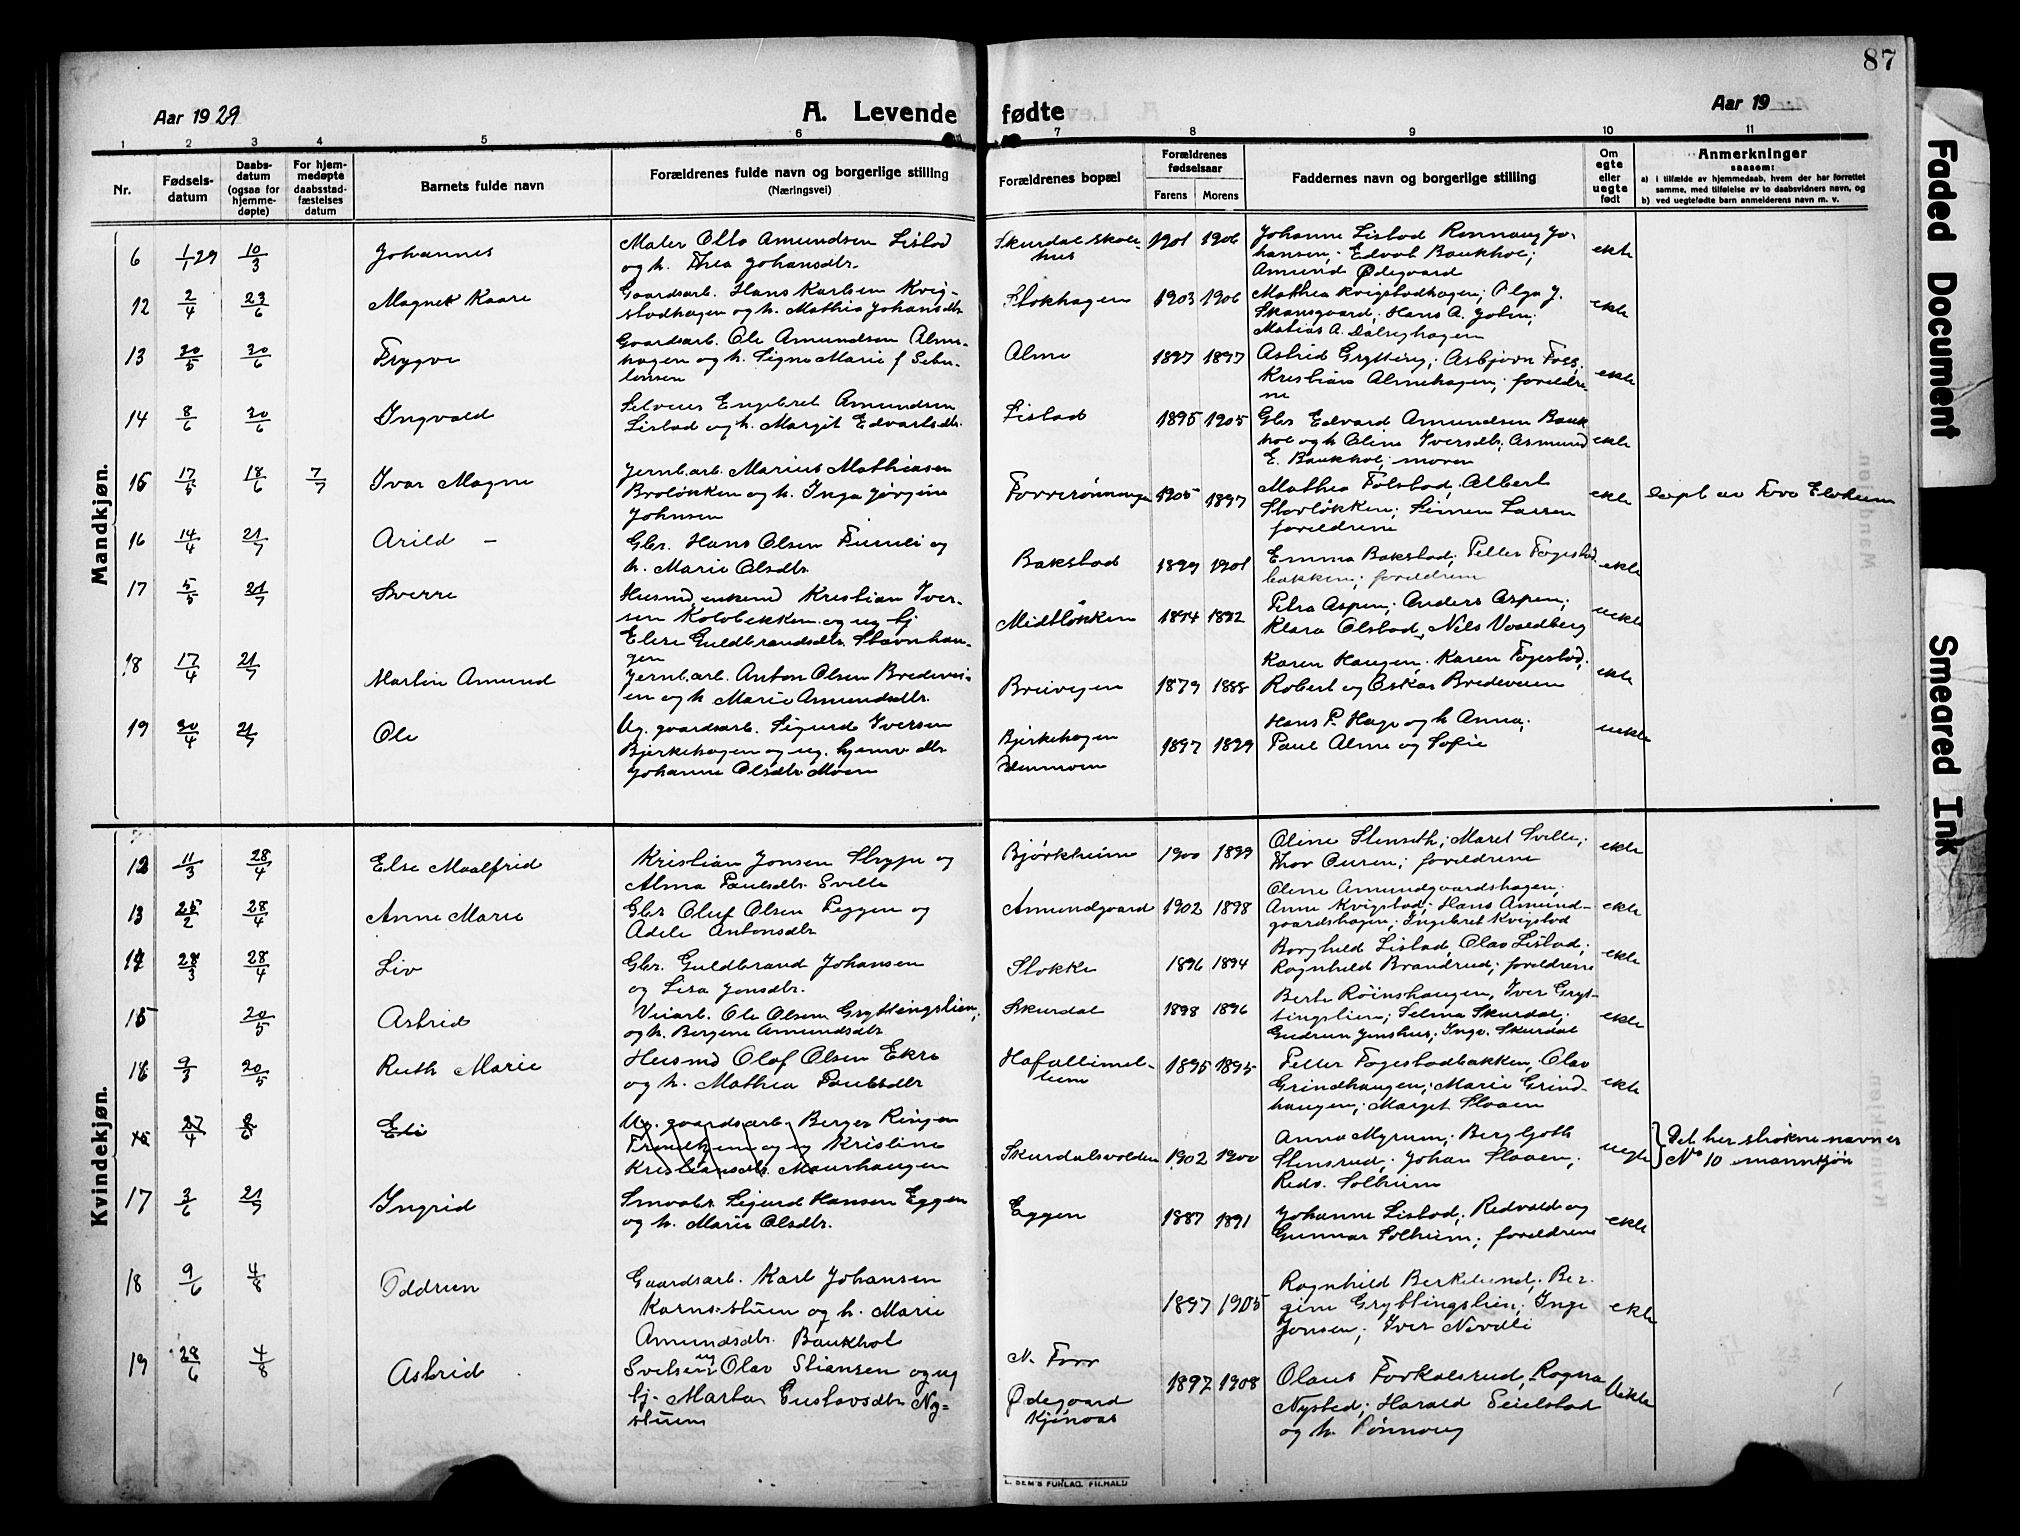 87
Aar 1929
A. Levende fødte
Aar 19
1 2 3 4 5 6 7 8 9 10 11
Nr.
Fødsels-
datum
Daabs-
datum
(ogsaa for
hjemme-
døpte)
For hjem-
medøpte
daabsstad-
fæstelses
datum
Barnets fulde navn
Forældrenes fulde navn og borgerlige stilling
(Næringsvei)
Forældrenes bopæl
Forældrenes
fødselsaar
Farens Morens
Faddernes navn og borgerlige stilling
Om
egte
eller
uegte
født
Anmerkninger
saasom:
a) i tilfælde av hjemmedaab, hvem der har forrettet
samme, med tilføielse av to daabsvidners navn, og
b) ved uegtefødte barn anmelderens navn m. v.
Mandkjøn.
6 1/1 29 10/3 Johannes
Maler Otto Amundsen Listad
og h. Thea Johansdtr.
Skurdal skole-
hus
1901 1906
Johanne Listad Rønnaug Jo-
hansen; Edvat Baukhol;
Amund Ødegaard
ekte
12 2/4 23/6 Magnek Kaare
Gaardsarb. Hans Karlsen Kvig-
stadhagen og h. Mathea Johansdtr
Slokhagen
1903 1906
Mathea Kvigstadhagen; Olga J.
Skansgaard; Hans A. Jotun;
Matias A. Dalseghagen
ekte
13 20/5 30/6 Trygve
Gaardsarb. Ole Amundsen Alme-
hagen og h. Signe Marie f Schu-
lensen
Alme
1897 1897
Astrid Grytting; Asbjørn Fols.
Kristian Almehagen; foreldre-
ne
ekte
14 8/6 30/6 Ingvald
Selveier Engebret Amundsen
Listad og h. Margit Edvartsdtr.
Listad
1895 1905
Gbr Edvard Amundsen Bauk-
hol og h Oline Iversdtr; Asmund
E. Baukhol; moren
ekte
15 17/5 18/6 7/7 Ivar Magne
Jernb.arb. Marius Mathiasen
Broløkken og h. Inga Jørgine
Johnsen
Forrerønningen
1905 1897
Mathea Folstad; Albert
Stavløkken; Simen Larsen
foreldrene
ekte
døpt av Tove Elvheim
16 14/4 21/7 Arild –
Gbr. Hans Olsen Fimlei og
h. Marie Olsdtr.
Bakstad
1899 1901
Emma Bakstad; Petter Fogestad
bakken; foreldrene
ekte
17 5/5 21/7 Sverre
Husmd enkemd Kristian Iver-
sen Kolobekken og ug tj
Elise Guldbrandsdtr. Stavnhau-
gen
Midtløkken
1874 1892
Petra Aspen; Anders Aspen;
Klara Olstad, Nils Vaaldberg
uekte
18 17/4 21/7 Martin Amund
Jernb.arb. Anton Olsen Bredevei-
en og h Marie Amundsdtr.
Breivegen
1879 1888
Karen Haugen; Karen Fogestad;
Robert og Oskar Bredeveien
ekte
19 30/4 21/7 Ole
Ug. gaardsarb. Sigurd Iversen
Bjerkehagen og ug. hjemv dtr
Johanne Olsdtr. Moen
Bjerkehagen
1897 1899
Hans P. Hage og h Anna;
Paul Alme og Sofie
uekte
Kvindekjøn.
12 11/3 28/4 Else Maalfrid
Kristian Jonsen Strype og
Alma Paulsdtr. Sville
Bjørkheim
1900 1899
Oline Stenseth; Maret Sville;
Thor Ouren; foreldrene
ekte
13 25/2 28/4 Anne Marie
Gbr Oluf Olsen Peggen og
Adele Antonsdtr
Amundgaard
1902 1898
Oline Amundgaardshagen;
Anne Kvigstad; Hans Amund-
gaardshagen; Ingebret Kvigstad
ekte
14 28/3 28/4 Liv
Gbr. Guldbrand Johansen
og Lisa Jonsdtr.
Slokke
1896 1894
Borghild Listad, Olav Listad;
Ragnhild Brandrud; foreldrene
ekte
15 20/5 Astrid
Veiarb. Ole Olsen Gryttingslien;
og h. Bergene Amundsdtr
Skurdal
1898 1896
Berte Røinshaugen, Iver Gryt-
tingslien; Selma Skurdal;
Gudrun Jenshus; Ingv. Skurdal
ekte
16 9/3 20/5 Ruth Marie
Husmd Olaf Olsen Ekre
og h. Mathea Paulsdtr
1895 1895
Petter Fogestadbakken, Olav
Grindhaugen; Marie Grind-
haugen; Margit Slaaen
ekte
27/4 2/6 Eli
Ug. gaardsarb. Berger Ringen
og ug Kristine
Kristiansdtr. Maurhaugen
Skurdalsvolden
1902 1900
Anna Myrum; Bergljoth
Stensrud; Johan Slaaen;
Reds. Solheim
uegte
Det her strøkne navn er
No 10 i mannkjøn
17 3/6 21/7 Ingrid
Smaabr. Sigurd Hansen Eggen
og h. Marie Olsdtr.
Eggen
1887 1891
Johanne Listad; Redvald og
Gunnar Solheim; foreldrene
ekte
18 9/6 4/8 Oddrun
Gaardsarb. Karl Johansen
Karnsstuen og h. Marie
Amundsdtr. Baukhol
1897 1905
Ragnhild Berkelund; Ber-
gine Gryttingslien; Inge
Jonsen; Iver Nordli
ekte
19 28/6 4/8 Astrid
Svelsen ug Olav Stiansen og ug
tj. Marta Gustavsdtr Ny-
stuen
N. Forr
Ødegaard
Kjønaas
1897 1908
Olaus Forkalsrud, Ragna
Nysted; Harald Seielstad
og h. Rønnaug
Uekte
E. SEM'S FORLAG. F.HALD
Faded Document
Smeared Ink